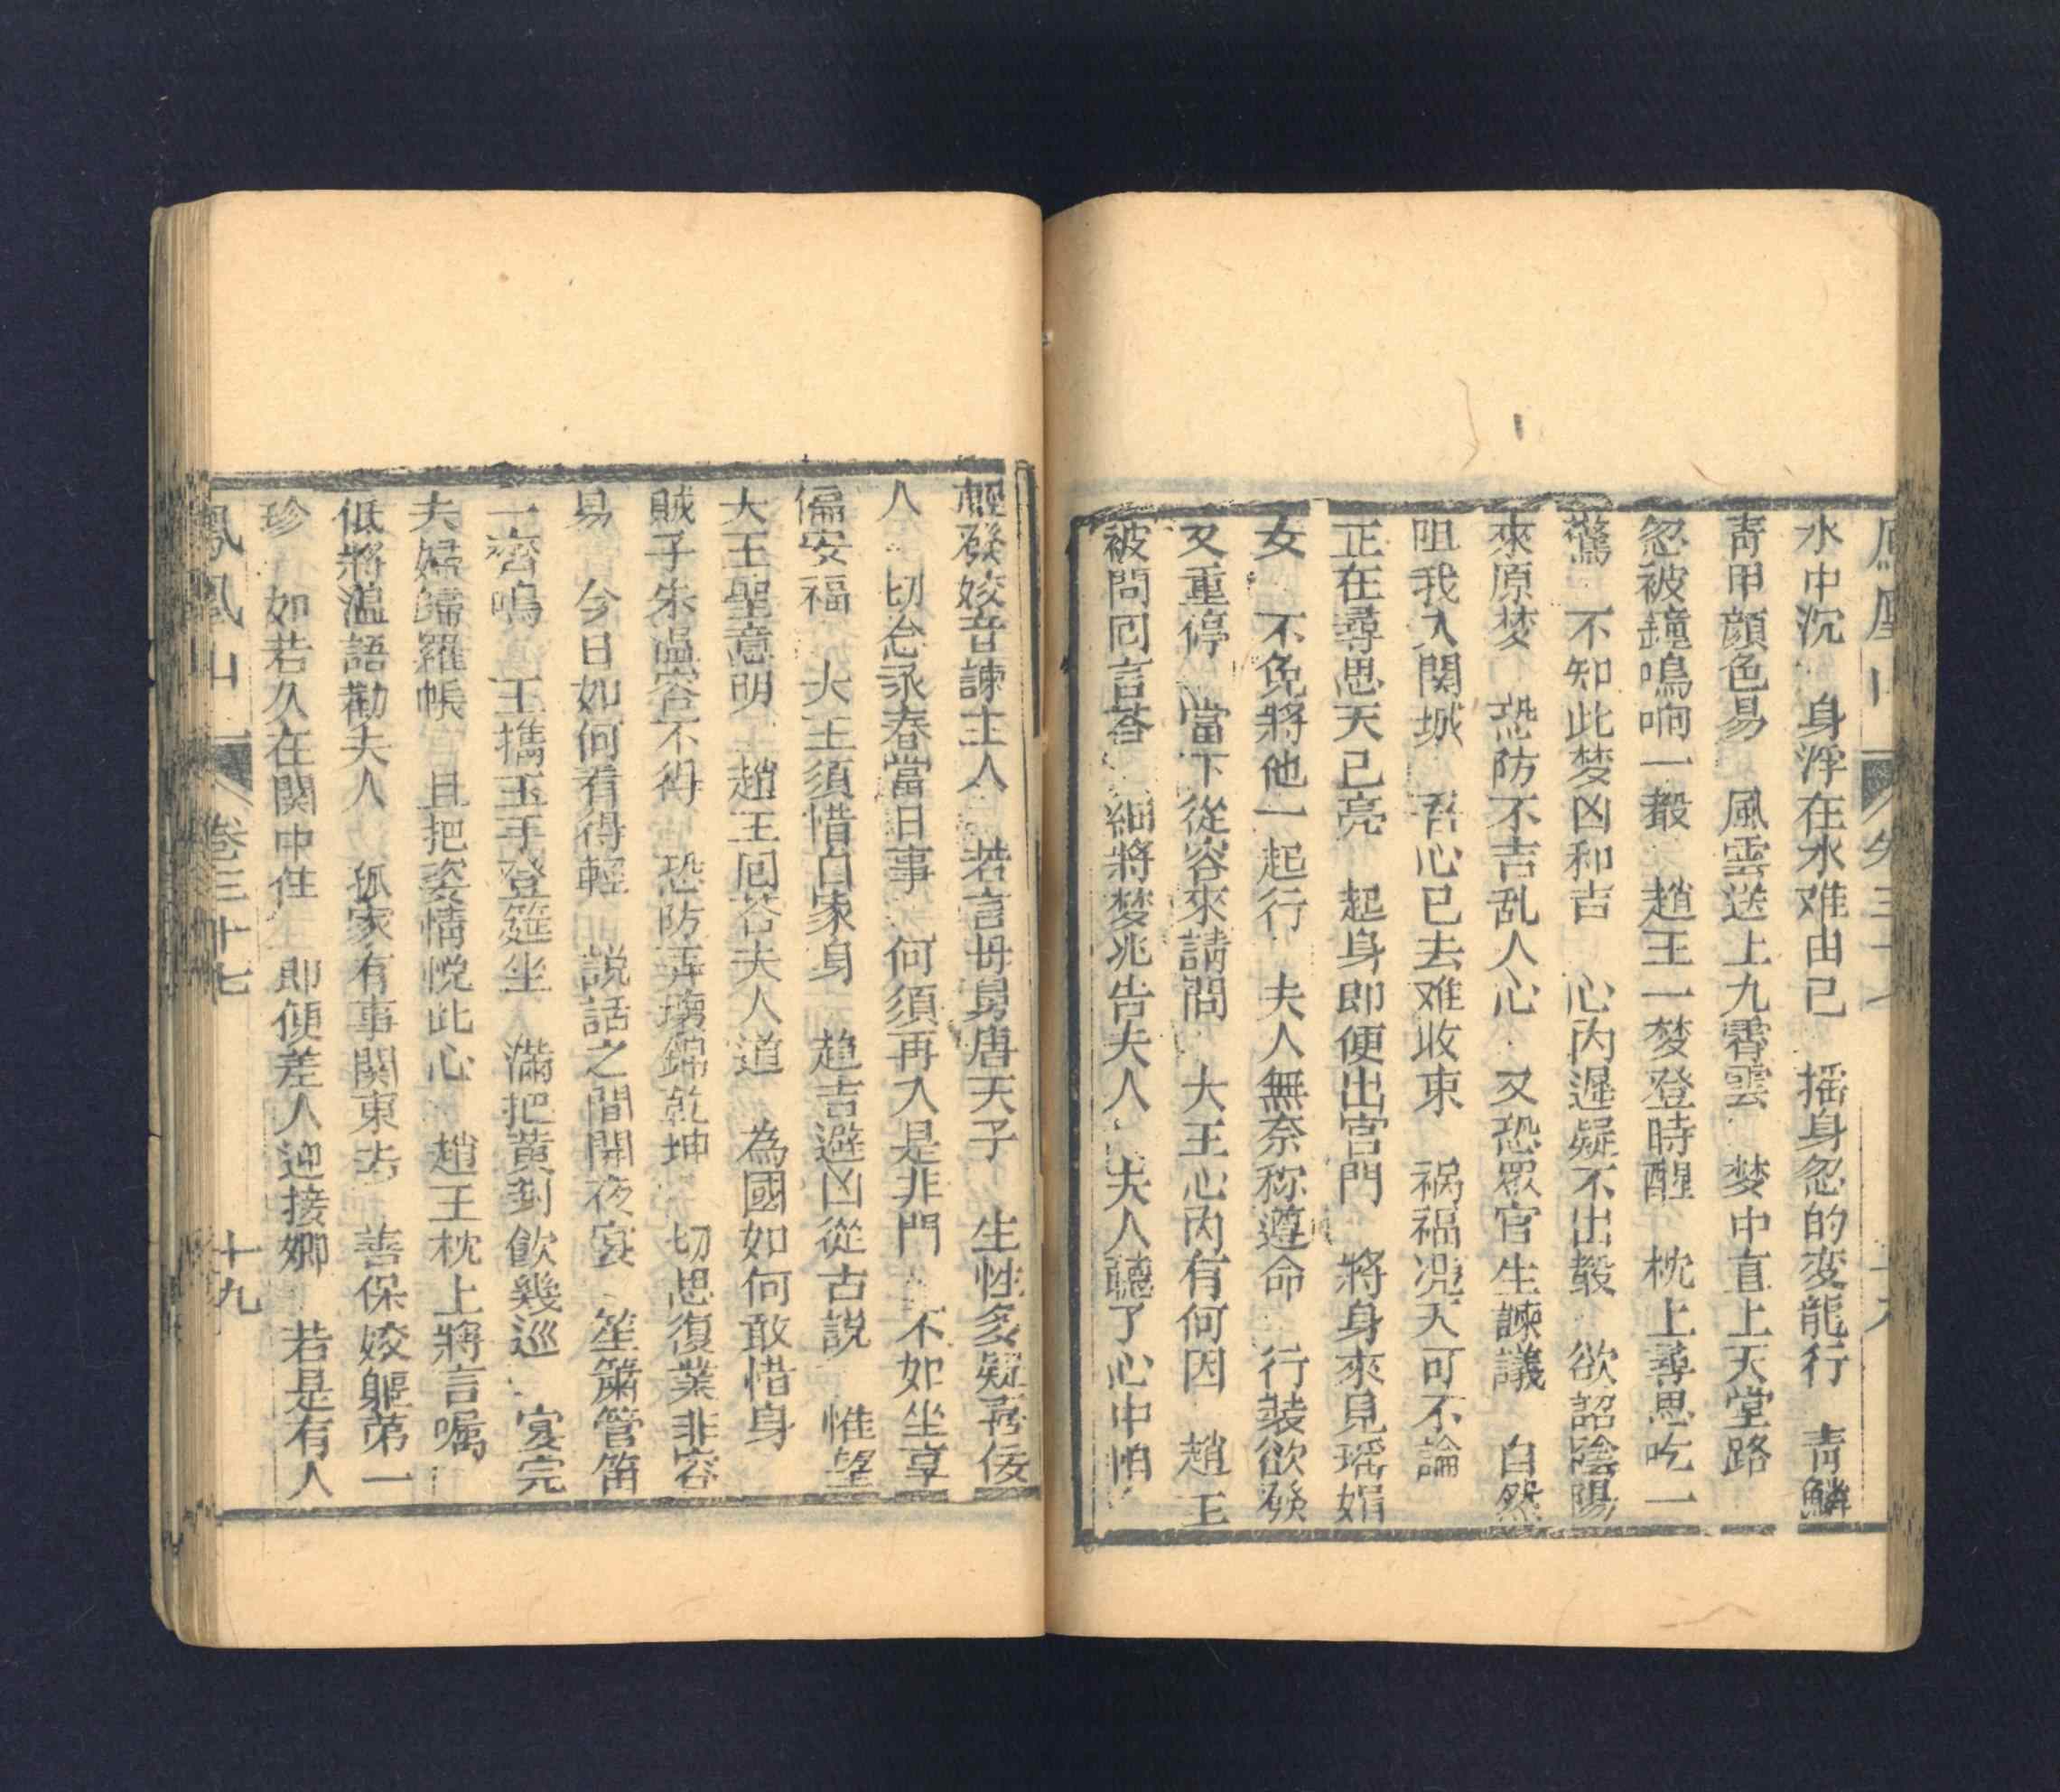 水中沉　身浮在水难由己　摇身忽的変龍行　青鱗
青甲顔色易　風雲送上九霄雲　梦中直上天堂路
忽被鐘鳴响一聲　趙王一梦登時醒　枕上尋思吃一
驚　不知此梦凶和吉　心内遲疑不出聲　欲詔陰陽
來原梦　恐防不吉乱人心　又恐眾官生諫議　自然
阻我入関城　吾心已去难收束　祸福凴天可不論
正在尋思天已亮　起身即便出宫門　將身來見瑶娟
女　不免將他一起行　夫人無奈称遵命　行裝欲發
又重停　當下從容來請問　大王心内有何因　趙王
被問回言荅　細將梦兆告夫人　夫人聽了心中怕
輕發姣音諫主人　若言母舅唐天子　生性多疑
人　切忿永春當日事　何須再入是非門　不如坐享
偏安福　大王須惜自家身　趋吉避凶從古説　惟望
大王聖意明　趙王回荅夫人道　為國如何敢惜身
賊子朱温容不得　恐防弄壞錦乾坤　切思復業非容
易　今日如何看得輕　説話之間開夜宴　笙簫管笛
一齊鳴　王攜玉手登筵坐　滿把黄封飲幾巡　宴完
夫婦歸羅帳　且把姿情悦此心　趙王枕上將言嘱
低將温語勸夫人　孤家有事関東去　善保姣軀第一
珍　如若久在関中住　即便差人迎接卿　若是有人
鳳凰山　卷三十七　十九